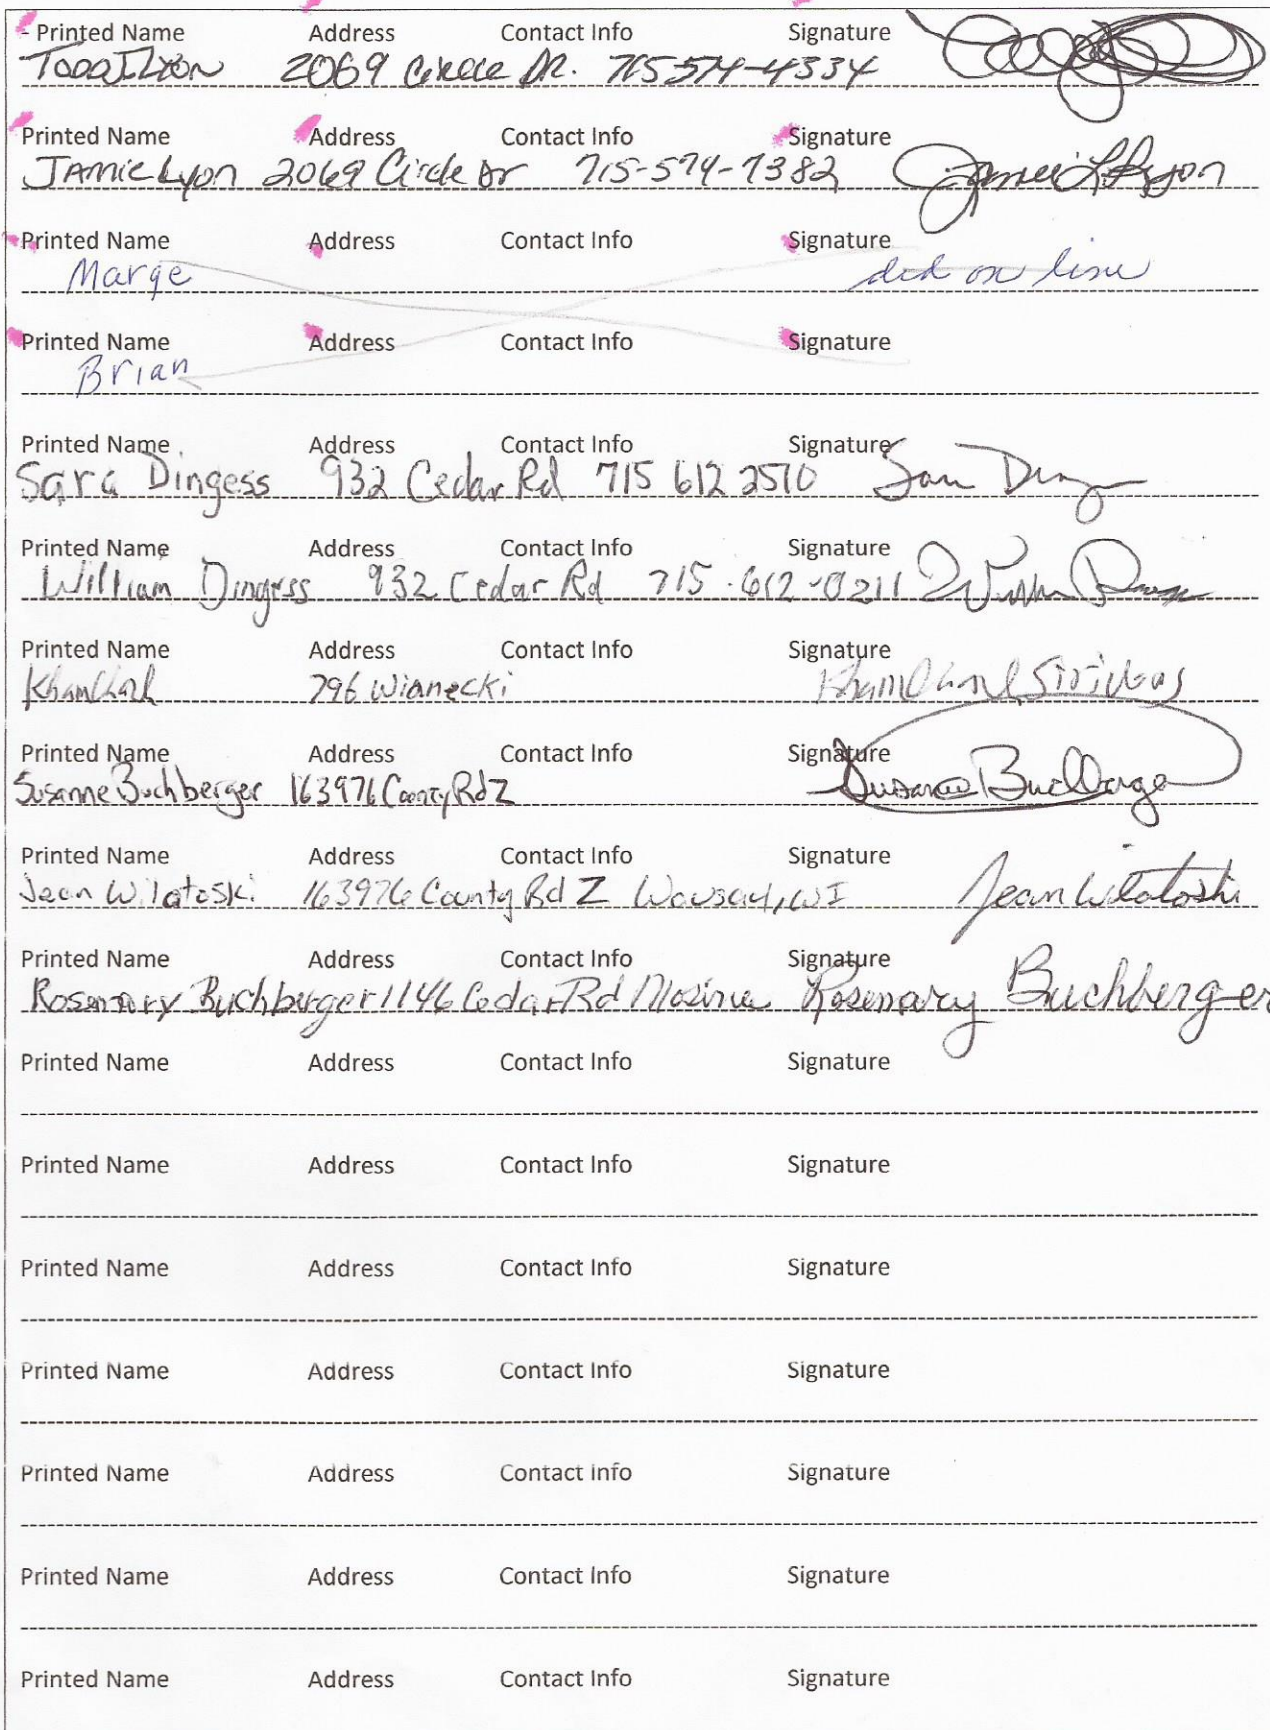 - Printed Name Address Contact Info Signature
Todd J Lyon 2069 Circle DR. 715 574-4334
Printed Name Address Contact Info Signature
JAmie Lyon 2069 Circle Dr 715-574-7382 Jamie L Lyon
Printed Name Address Contact Info Signature
Marge did on line
Printed Name Address Contact Info Signature
Brian
Printed Name Address Contact Info Signature
Sara Dingess 932 Cedar Rd 715 612 2510 Sara
Printed Name Address Contact Info Signature
William Dingess 932 Cedar Rd 715-612-0211
Printed Name Address Contact Info Signature
796 Wianecki
Printed Name Address Contact Info Signature
Susanne Buchberger 163976 County Rd Z Susanne Buchberger
Printed Name Address Contact Info Signature
Jean Wilatoski 163976 County Rd Z Wausau, WI Jean Wilatoski
Printed Name Address Contact Info Signature
Rosemary Buchberger 1146 Cedar Rd Mosinee Rosemary Buchberger
Printed Name Address Contact Info Signature
Printed Name Address Contact Info Signature
Printed Name Address Contact Info Signature
Printed Name Address Contact Info Signature
Printed Name Address Contact Info Signature
Printed Name Address Contact Info Signature
Printed Name Address Contact Info Signature